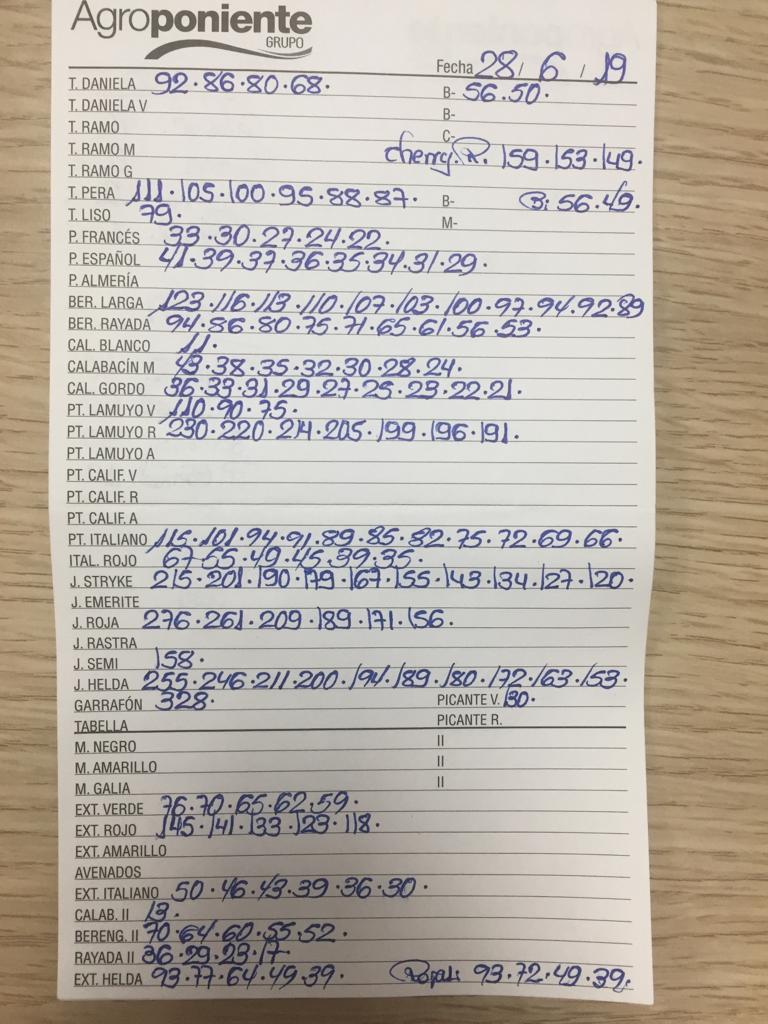 Agroponiente
GRUPO
Fecha 28/ 6 / 19
T. DANIELA 92·86·80·68· B- 56·50·
T. DANIELA V B-
T. RAMO C-
T. RAMO M cherry. R. 159·153·149·
T. RAMO G
T. PERA 111·105·100·95·88·87· B- B: 56·49·
T. LISO 79· M-
P. FRANCÉS 33·30·27·24·22·
P. ESPAÑOL 41·39·37·36·35·34·31·29·
P. ALMERÍA
BER. LARGA 123·116·113·110·107·103·100·97·94·92·89
BER. RAYADA 94·86·80·75·71·65·61·56·53·
CAL. BLANCO 11·
CALABACÍN M 43·38·35·32·30·28·24·
CAL. GORDO 36·33·31·29·27·25·23·22·21·
PT. LAMUYO V 110·90·75·
PT. LAMUYO R 230·220·214·205·199·196·191·
PT. LAMUYO A
PT. CALIF. V
PT. CALIF. R
PT. CALIF. A
PT. ITALIANO 115·101·94·91·89·85·82·75·72·69·66·
ITAL. ROJO 67·55·49·45·39·35·
J. STRYKE 215·201·190·179·167·155·143·134·127·120·
J. EMERITE
J. ROJA 276·261·209·189·171·156·
J. RASTRA
J. SEMI 158·
J. HELDA 255·246·211·200·194·189·180·172·163·153·
GARRAFÓN 328· PICANTE V. 130·
TABELLA PICANTE R.
M. NEGRO II
M. AMARILLO II
M. GALIA II
EXT. VERDE 76·70·65·62·59·
EXT. ROJO 145·141·133·123·118·
EXT. AMARILLO
AVENADOS
EXT. ITALIANO 50·46·43·39·36·30·
CALAB. II 13·
BERENG. II 70·64·60·55·52·
RAYADA II 36·29·23·17·
EXT. HELDA 93·77·64·49·39· 93·72·49·39·